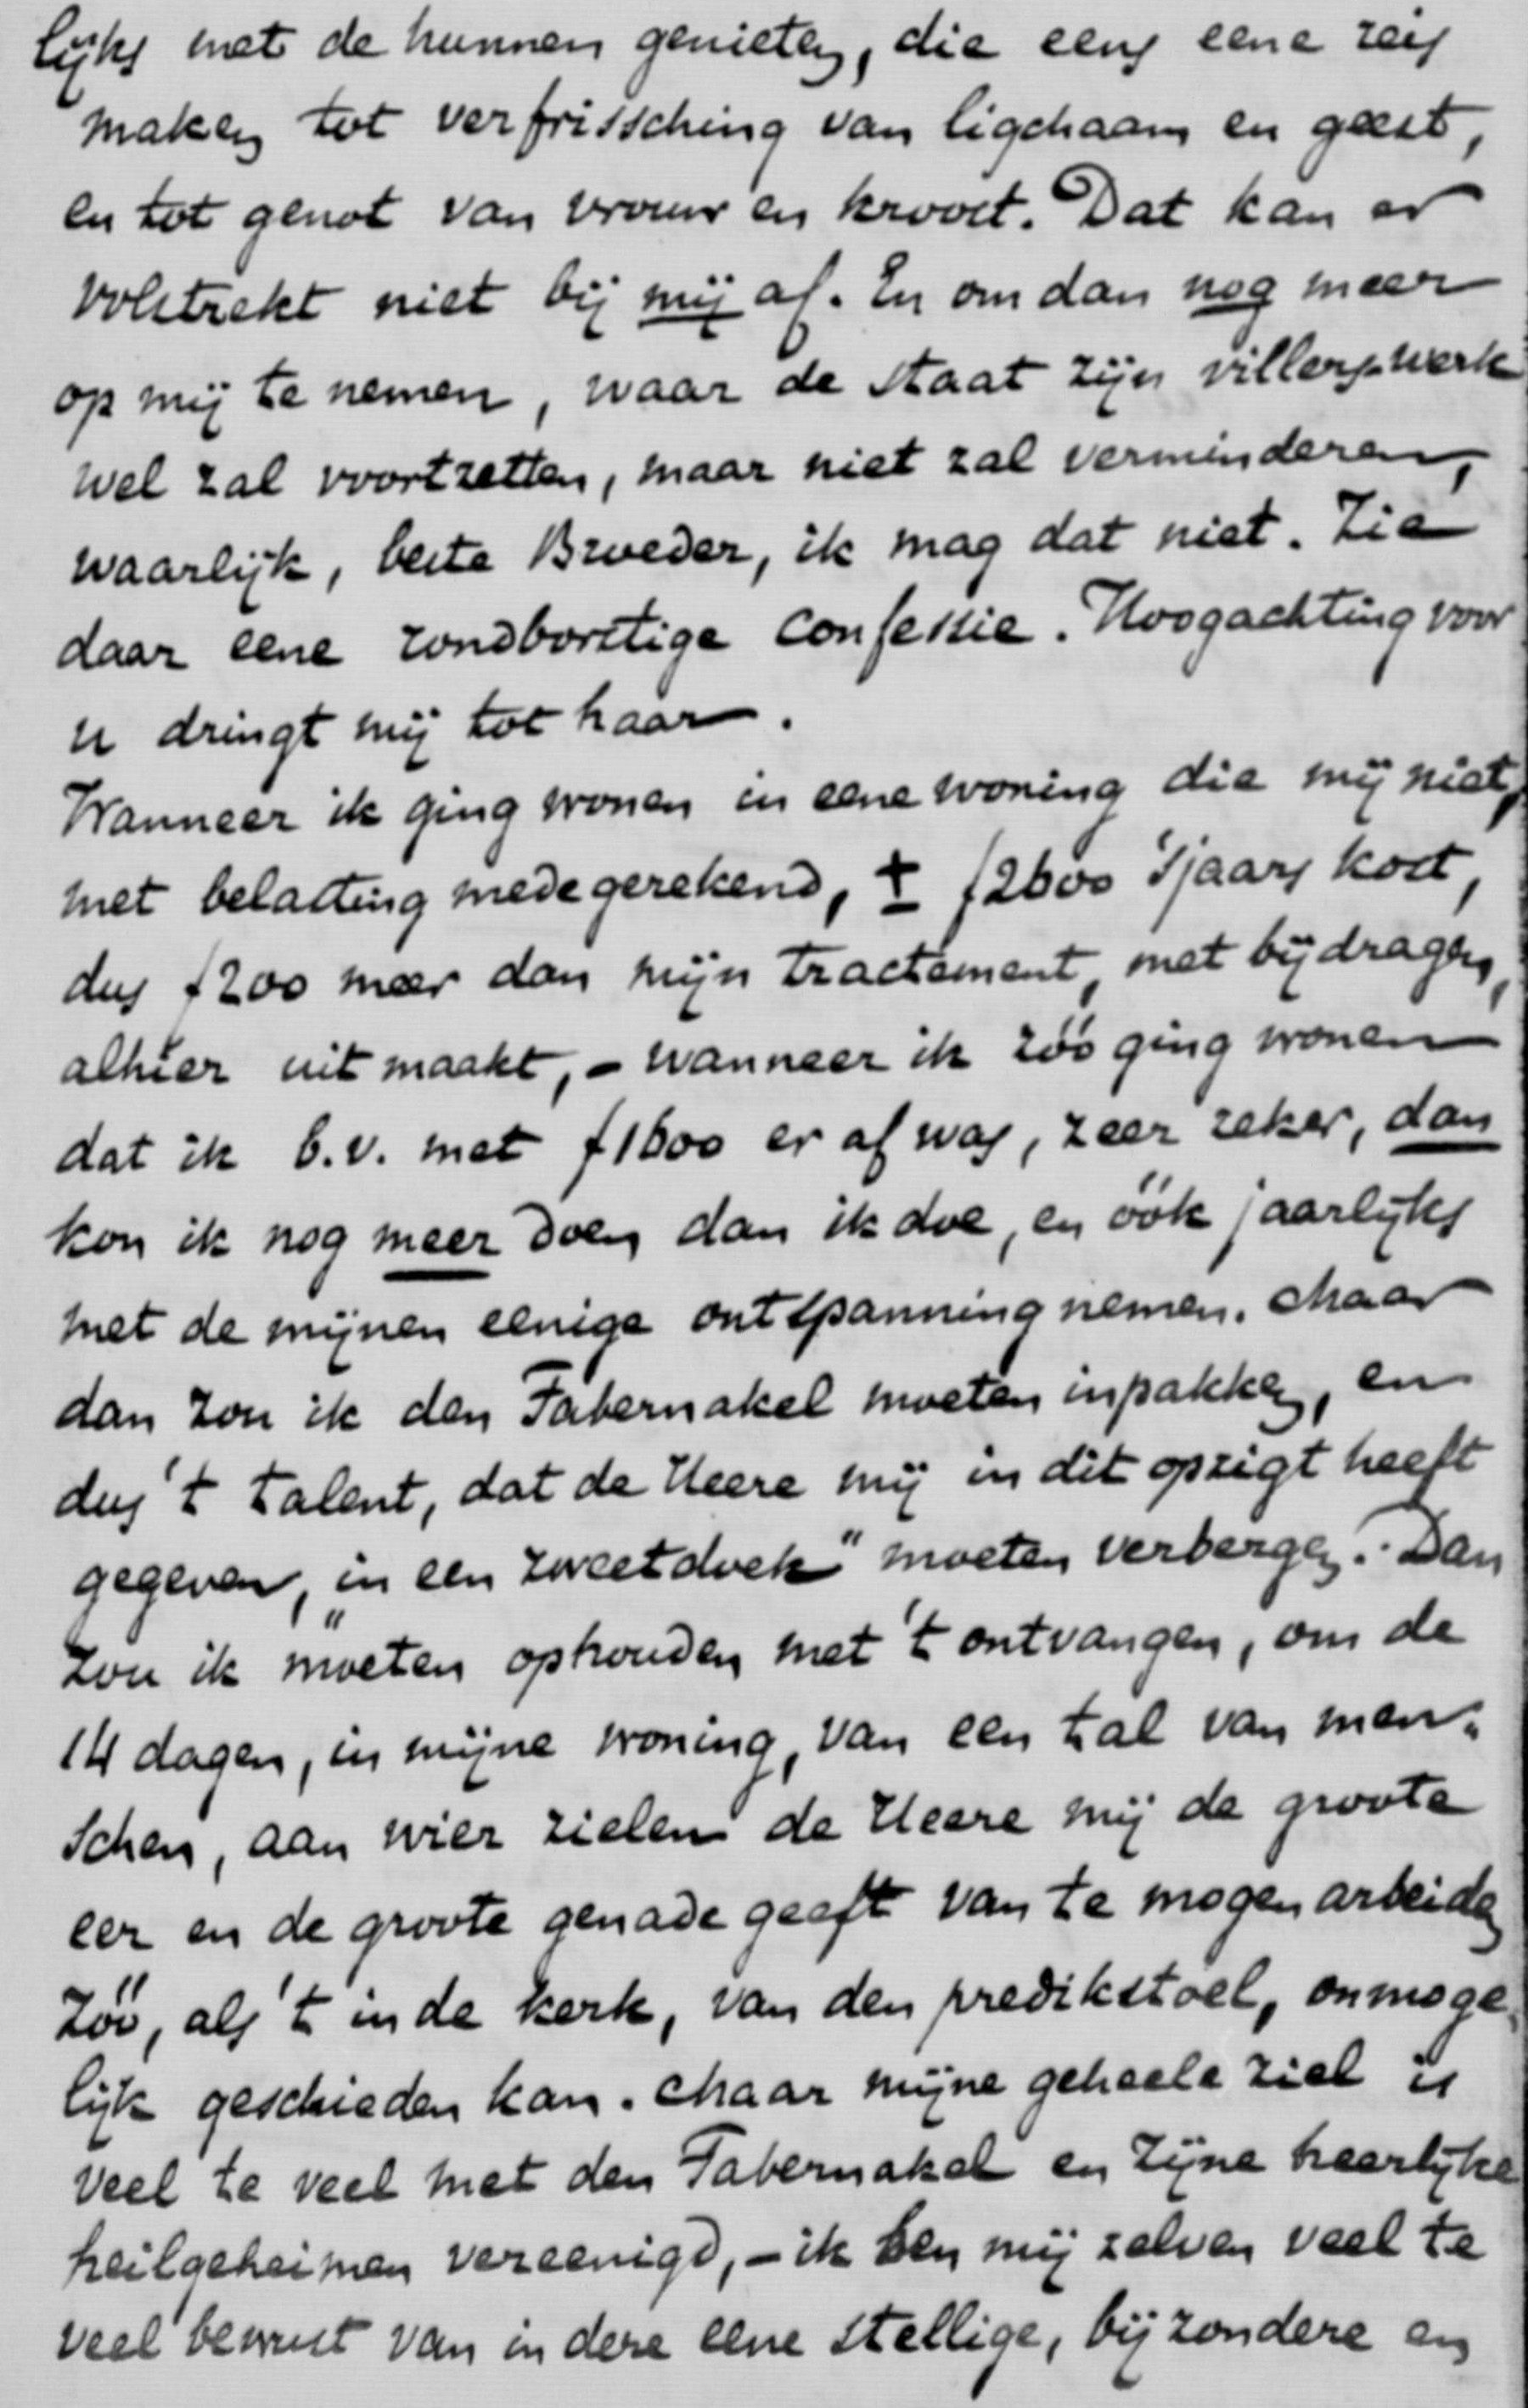 lijks met de hunnen genieten, die eens eene reis
maken tot verfrissching van ligchaam en geest,
en tot genot van vrouw en kroost. Dat kan er
volstrekt niet bij mij af. En om dan nog meer
op mij te nemen, waar de Staat zijn villerswerk
wel zal voortzetten, maar niet zal verminderen,
waarlijk, beste Broeder, ik mag dat niet. Zie
daar eene rondborstige confessie. Hoogachting voor
u dringt mij tot haar.
Wanneer ik ging wonen in eene woning die mij niet,
met belasting medegerekend, ± f2600 'sjaars kost,
dus f200 meer dan mijn tractement, met bijdragen,
alhier uitmaakt, - wanneer ik zóó ging wonen
dat ik b.v. met f1600 er af was, zeer zeker, dan
kon ik nog meer doen dan ik doe, en óók jaarlijks
met de mijnen eenige ontspanning nemen. Maar
dan zou ik den Tabernakel moeten inpakken, en
dus 't talent, dat de Heere mij in dit opzigt heeft
gegeven, „in een zweetdoek" moeten verbergen. Dan
zou ik moeten ophouden met 't ontvangen, om de
14 dagen, in mijne woning, van een tal van men-
schen, aan wier zielen de Heere mij de groote
eer en de groote genade geeft van te mogen arbeiden
zóó, als 't in de kerk, van den predikstoel, onmoge-
lijk geschieden kan. Maar mijne geheele ziel is
veel te veel met den Tabernakel en Zijne heerlijke
heilgeheimen vereenigd, - ik ben mij zelven veel te
veel bewust van in deze eene stellige, bijzondere en